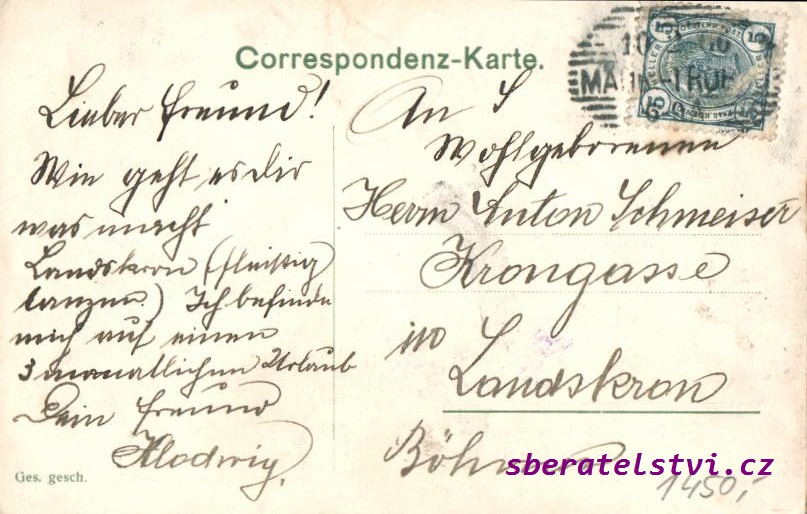 Correspondenz-Karte.
Lieber Freund!
Wie geht es dir
was macht
Landskron (fleissig
tanzen.) Ich befinde
mich auf einen
3 monatlichen Urlaub
Dein Freund
Klodwig.
Ges. gesch.
An S
Wohlgeborenen
Herrn Anton Schmeiser
Krongasse
in
Landskron
Böhmen
sberatelstvi.cz
1450,-
5 5
HELLER
5 5